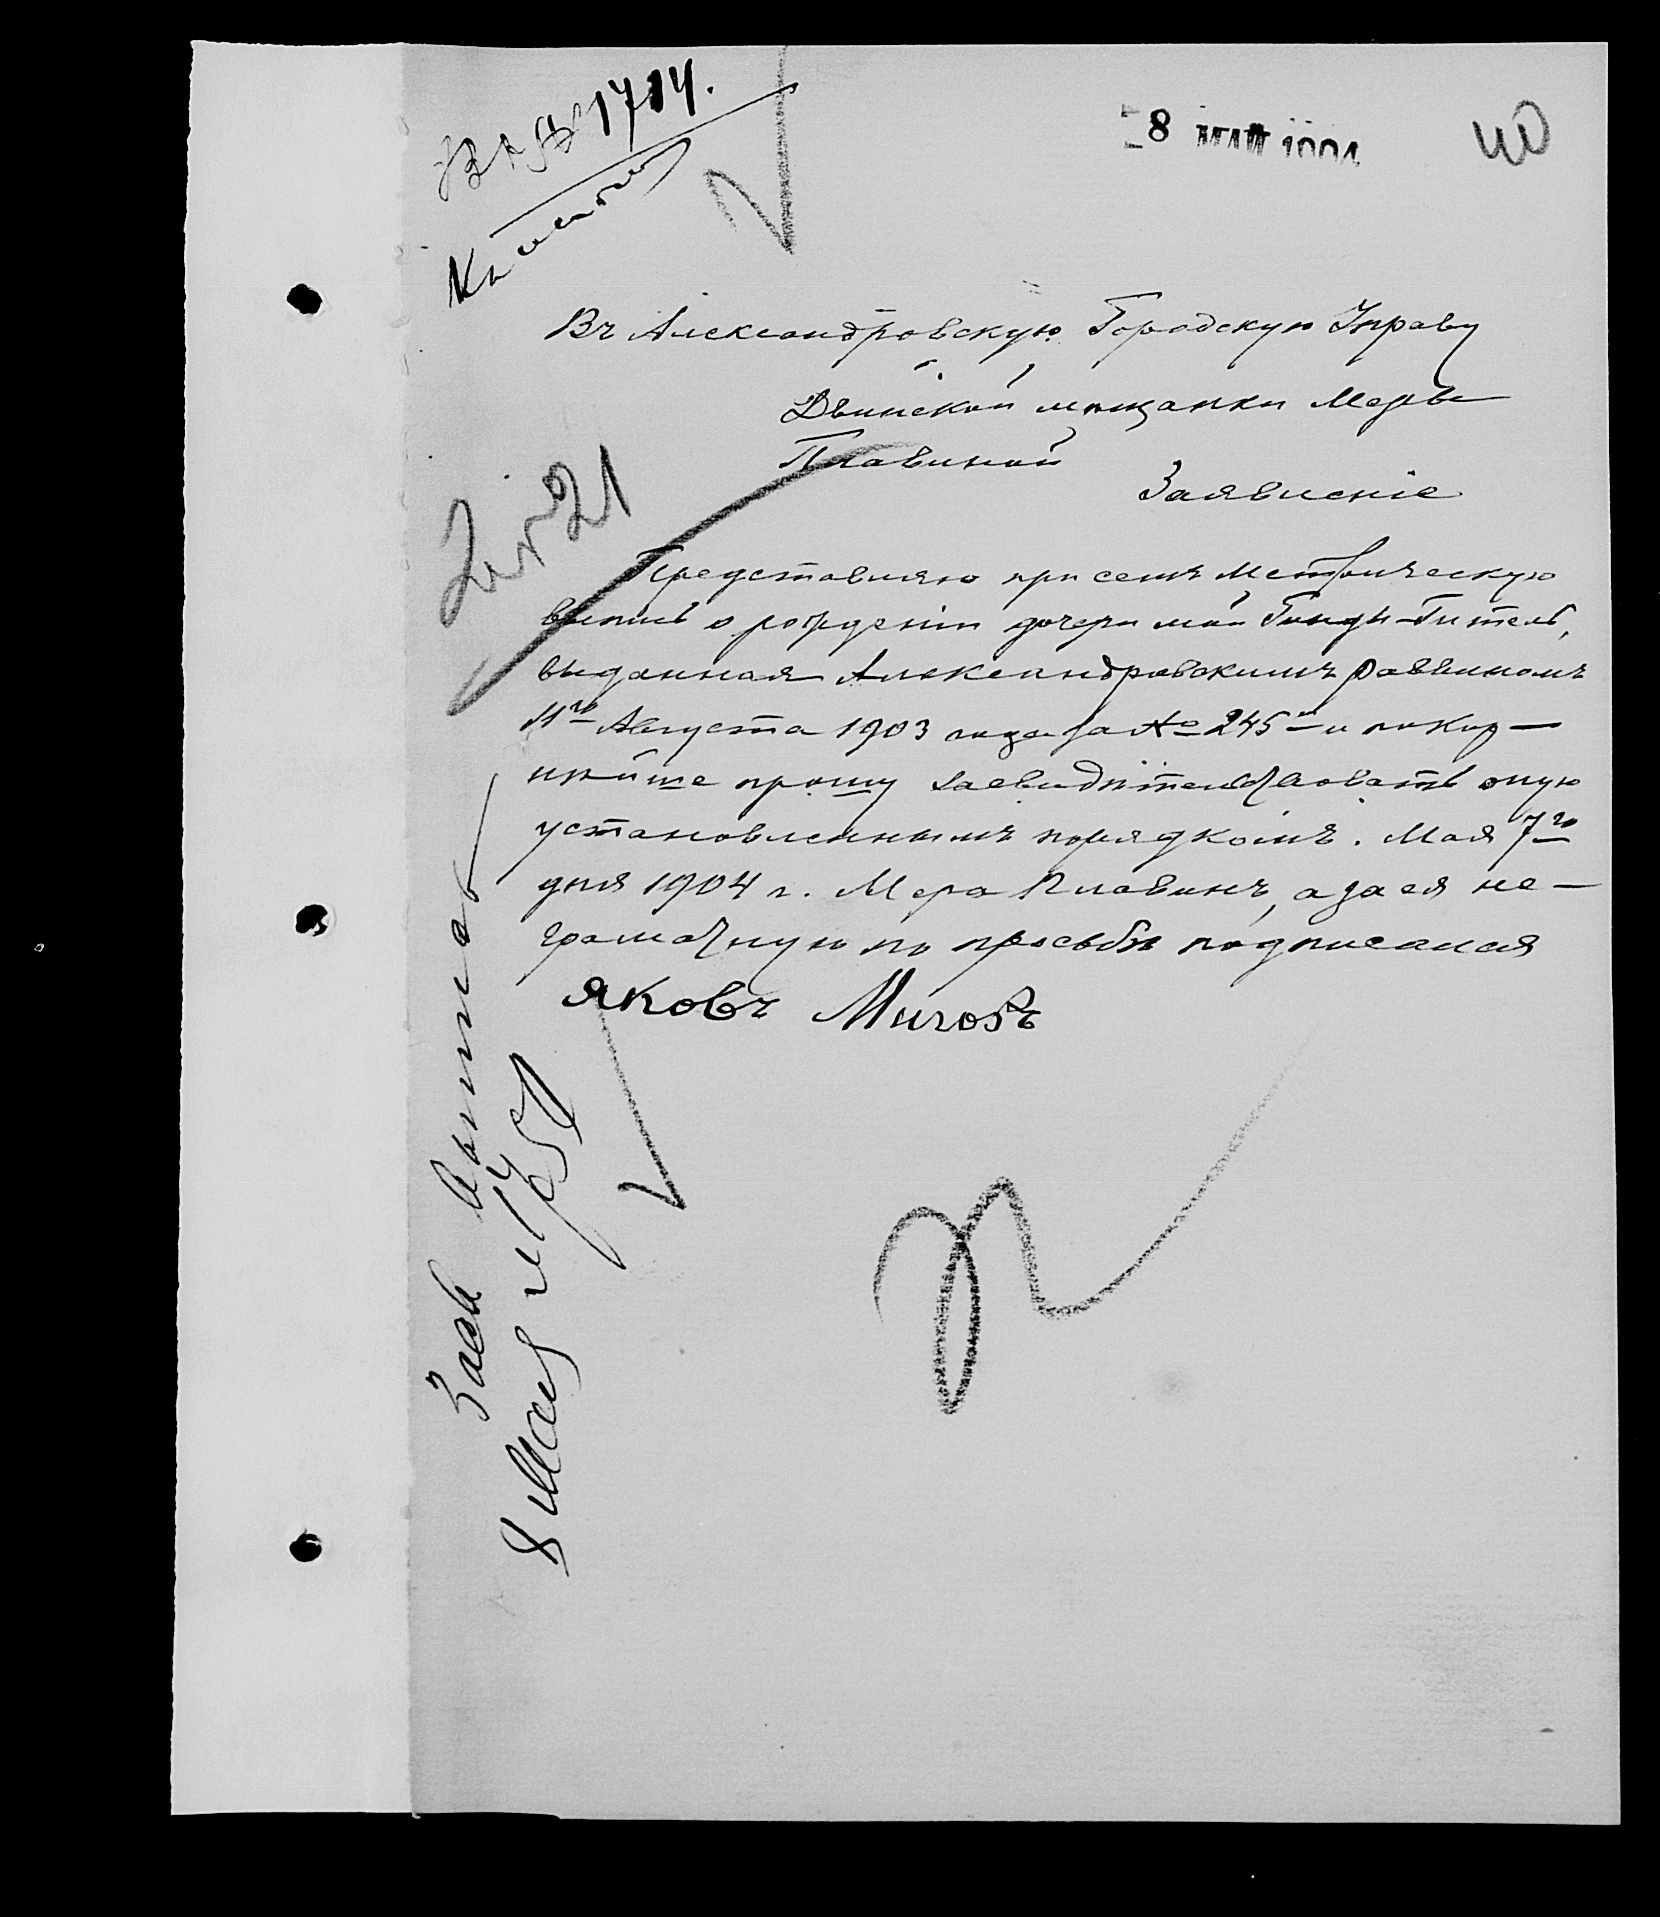 Вх № 1714.
8 МАЯ 1904
40
Въ Александровскую Городскую Управу
Двинской мѣщанки Меры
Плавиной
Заявленіе
Представляю при семъ метрическую
выпись о рожденіи дочери моей Гинды-Гитель,
выданная Александровскимъ раввиномъ
11го Августа 1903 года за № 245 и покор-
нѣйше прошу засвидѣтельствовать оную
установленнымъ порядкомъ. Мая 7го
дня 1904 г. Мера Плавинъ, а за ея не-
грамотную по просьбѣ подписался
Яковъ
21
8 Мая